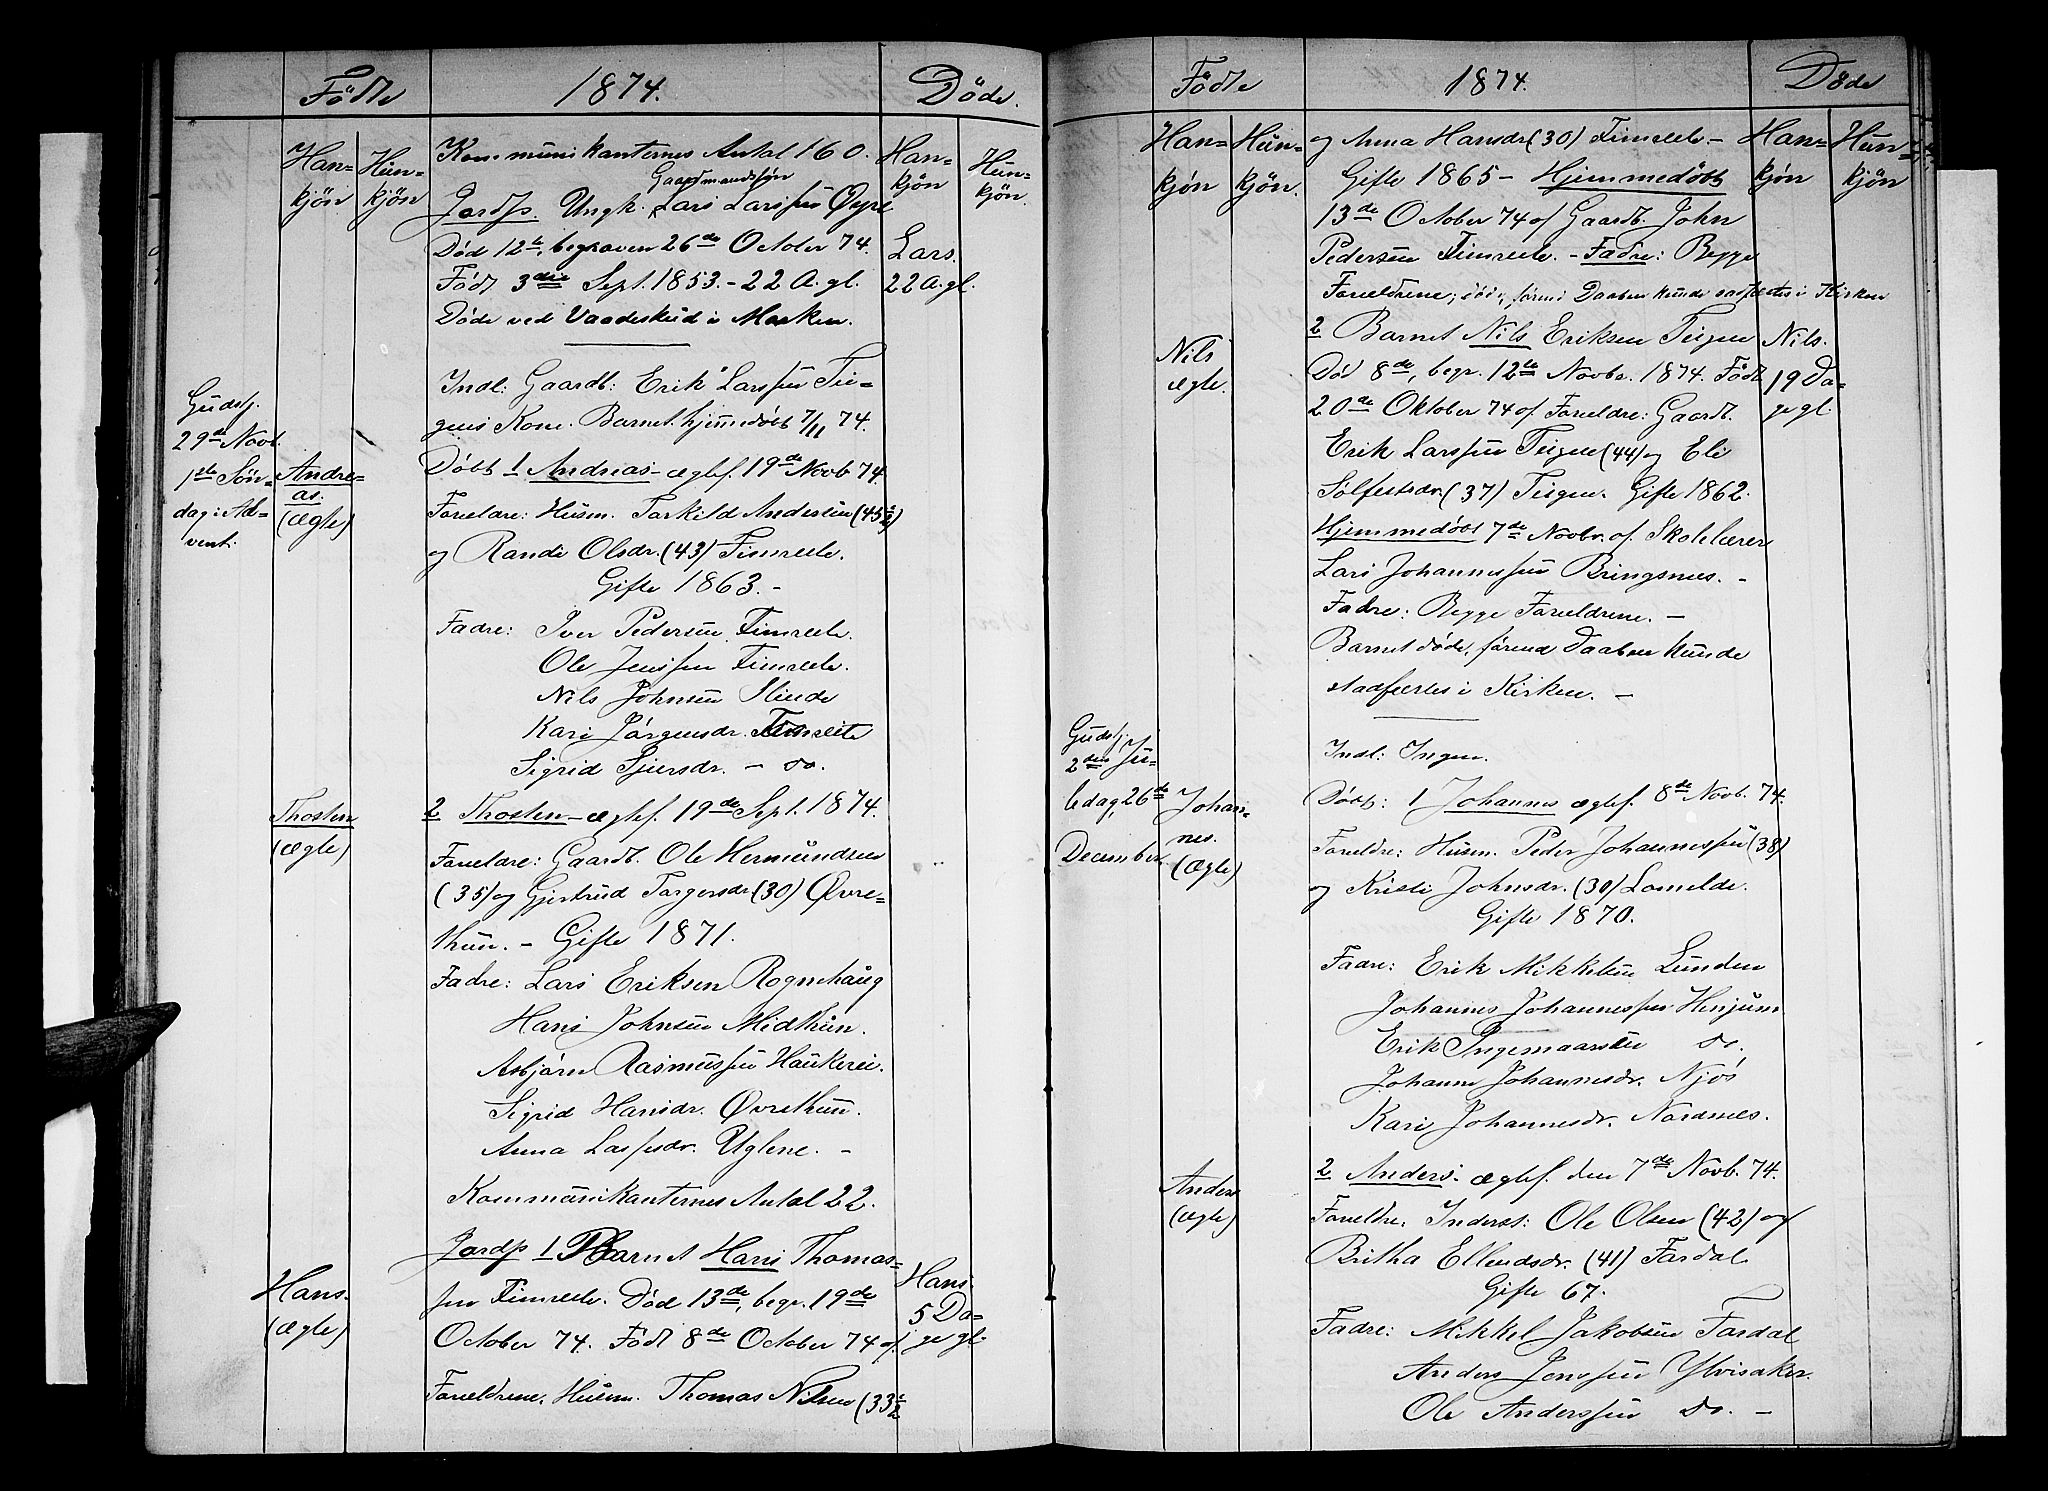 Födte
1874.
Döde.
Han-
kjön
Hun-
kjön
Kommunikanternes Antal 160.
Han-
kjön
Hun-
kjön.
Gaardmandssön
Jordf. Ungk. Lars Larssen Øyre
Död 12te, begraven 26de October 74.
Lars.
Född 3die Sept. 1853. - 22 A. gl.
22 A. gl.
Döde ved Vaadeskud i Marken.
Indl: Gaardb: Erik Larssen Tei-
gens Kone. Barnet hjemmedöbt 7/11 74.
Gudstj.
29de Novb.
1ste Sön-
dag i Ad-
vent.
Andre-
as.
(ægte)
Döbt 1 Andreas - ægtef. 19de Novb 74.
Forældre: Husm. Torkild Andersen (45½)
og Randi Olsdr. (43) Fimreete.
Gifte 1863. -
Fadre: Iver Pedersen Fimreete.
Ole Jenssen Fimreete.
Nils Johnsen Slinde
Kari Jörgensdr. Fimreite
Sigrid Sjursdr. - do.
Thosten
(ægte)
2 Thosten - ægtef. 19de Sept. 1874.
Forældre: Gaardb. Ole Hermundsen
(35) og Gjertrud Torgersdr. (30) Øvre-
thun. - Gifte 1871.
Fadre: Lars Eriksen Rognehaug
Hans Johnsen Midthun.
Asbjörn Rasmussen Haukerei.
Sigrid Hansdr. Øvrethun.
Anna Lassesdr. Uglene. -
Kommunikanternes Antal 22.
Hans.
(ægte)
Jordf 1 Barnet Hans Thomas-
sen Fimreete. Död 13de, begr. 19de
October 74. Född 8de October 74 af
Forældrene, Husm. Thomas Nilsen (33½
Hans
5 Da-
ge gl.
Födte
1874.
Döde
Han-
kjön
Hun-
kjön.
og Anna Hansdr (30) Fimreete -
Han-
kjön
Hun-
kjön
Gifte 1865 - Hjemmedöbt
13de October 74 af Gaardb. John
Pedersen Fimreete. - Fadre: Begge
Forældrene; död, förend Daaben kunde stadfæstes i Kirken
Nils
ægte.
2 Barnet Nils Eriksen Teigen
Nils.
Död 8de, begr. 12te Novbr. 1874. Född
19 Da-
20de Oktober 74 af Forældre: Gaardb.
ge gl.
Erik Larssen Teigen (44) og Eli
Sölfestsdr. (37) Teigen. Gifte 1862.
Hjemmedöbt 7de Novbr. af Skolelærer
Lars Johannessen Bringsnes. -
Fadre: Begge Forældrene. -
Barnet döde, förend Daaben kunde
stadfæstes i Kirken. -
Gudstj.
2den Ju-
ledag, 26de
December.
Indl: Ingen.
Johan-
nes.
(Ægte)
Döbt: 1 Johannes ægtef. 8de Novb. 74.
Forældre: Husm. Peder Johannessen (38)
og Kristi Johnsdr. (30) Lomelde.
Gifte 1870.
Fadre: Erik Mikkelsen Lunden
Johannes Johannessen Henjum
Erik Ingemaarsen do.
Johanne Johannesdr. Njös
Kari Johannesdr. Nordnes.
Anders
(ægte)
2 Anders. ægtef. den 7de Novb. 74.
Forældre: Inderst: Ole Olsen (42) og
Britha Ellendsdr. (41) Fardal
Gifte 67.
Fadre: Mikkel Jakobsen Fardal
Anders Jonssen Ylvisaker.
Ole Anderssen do. -